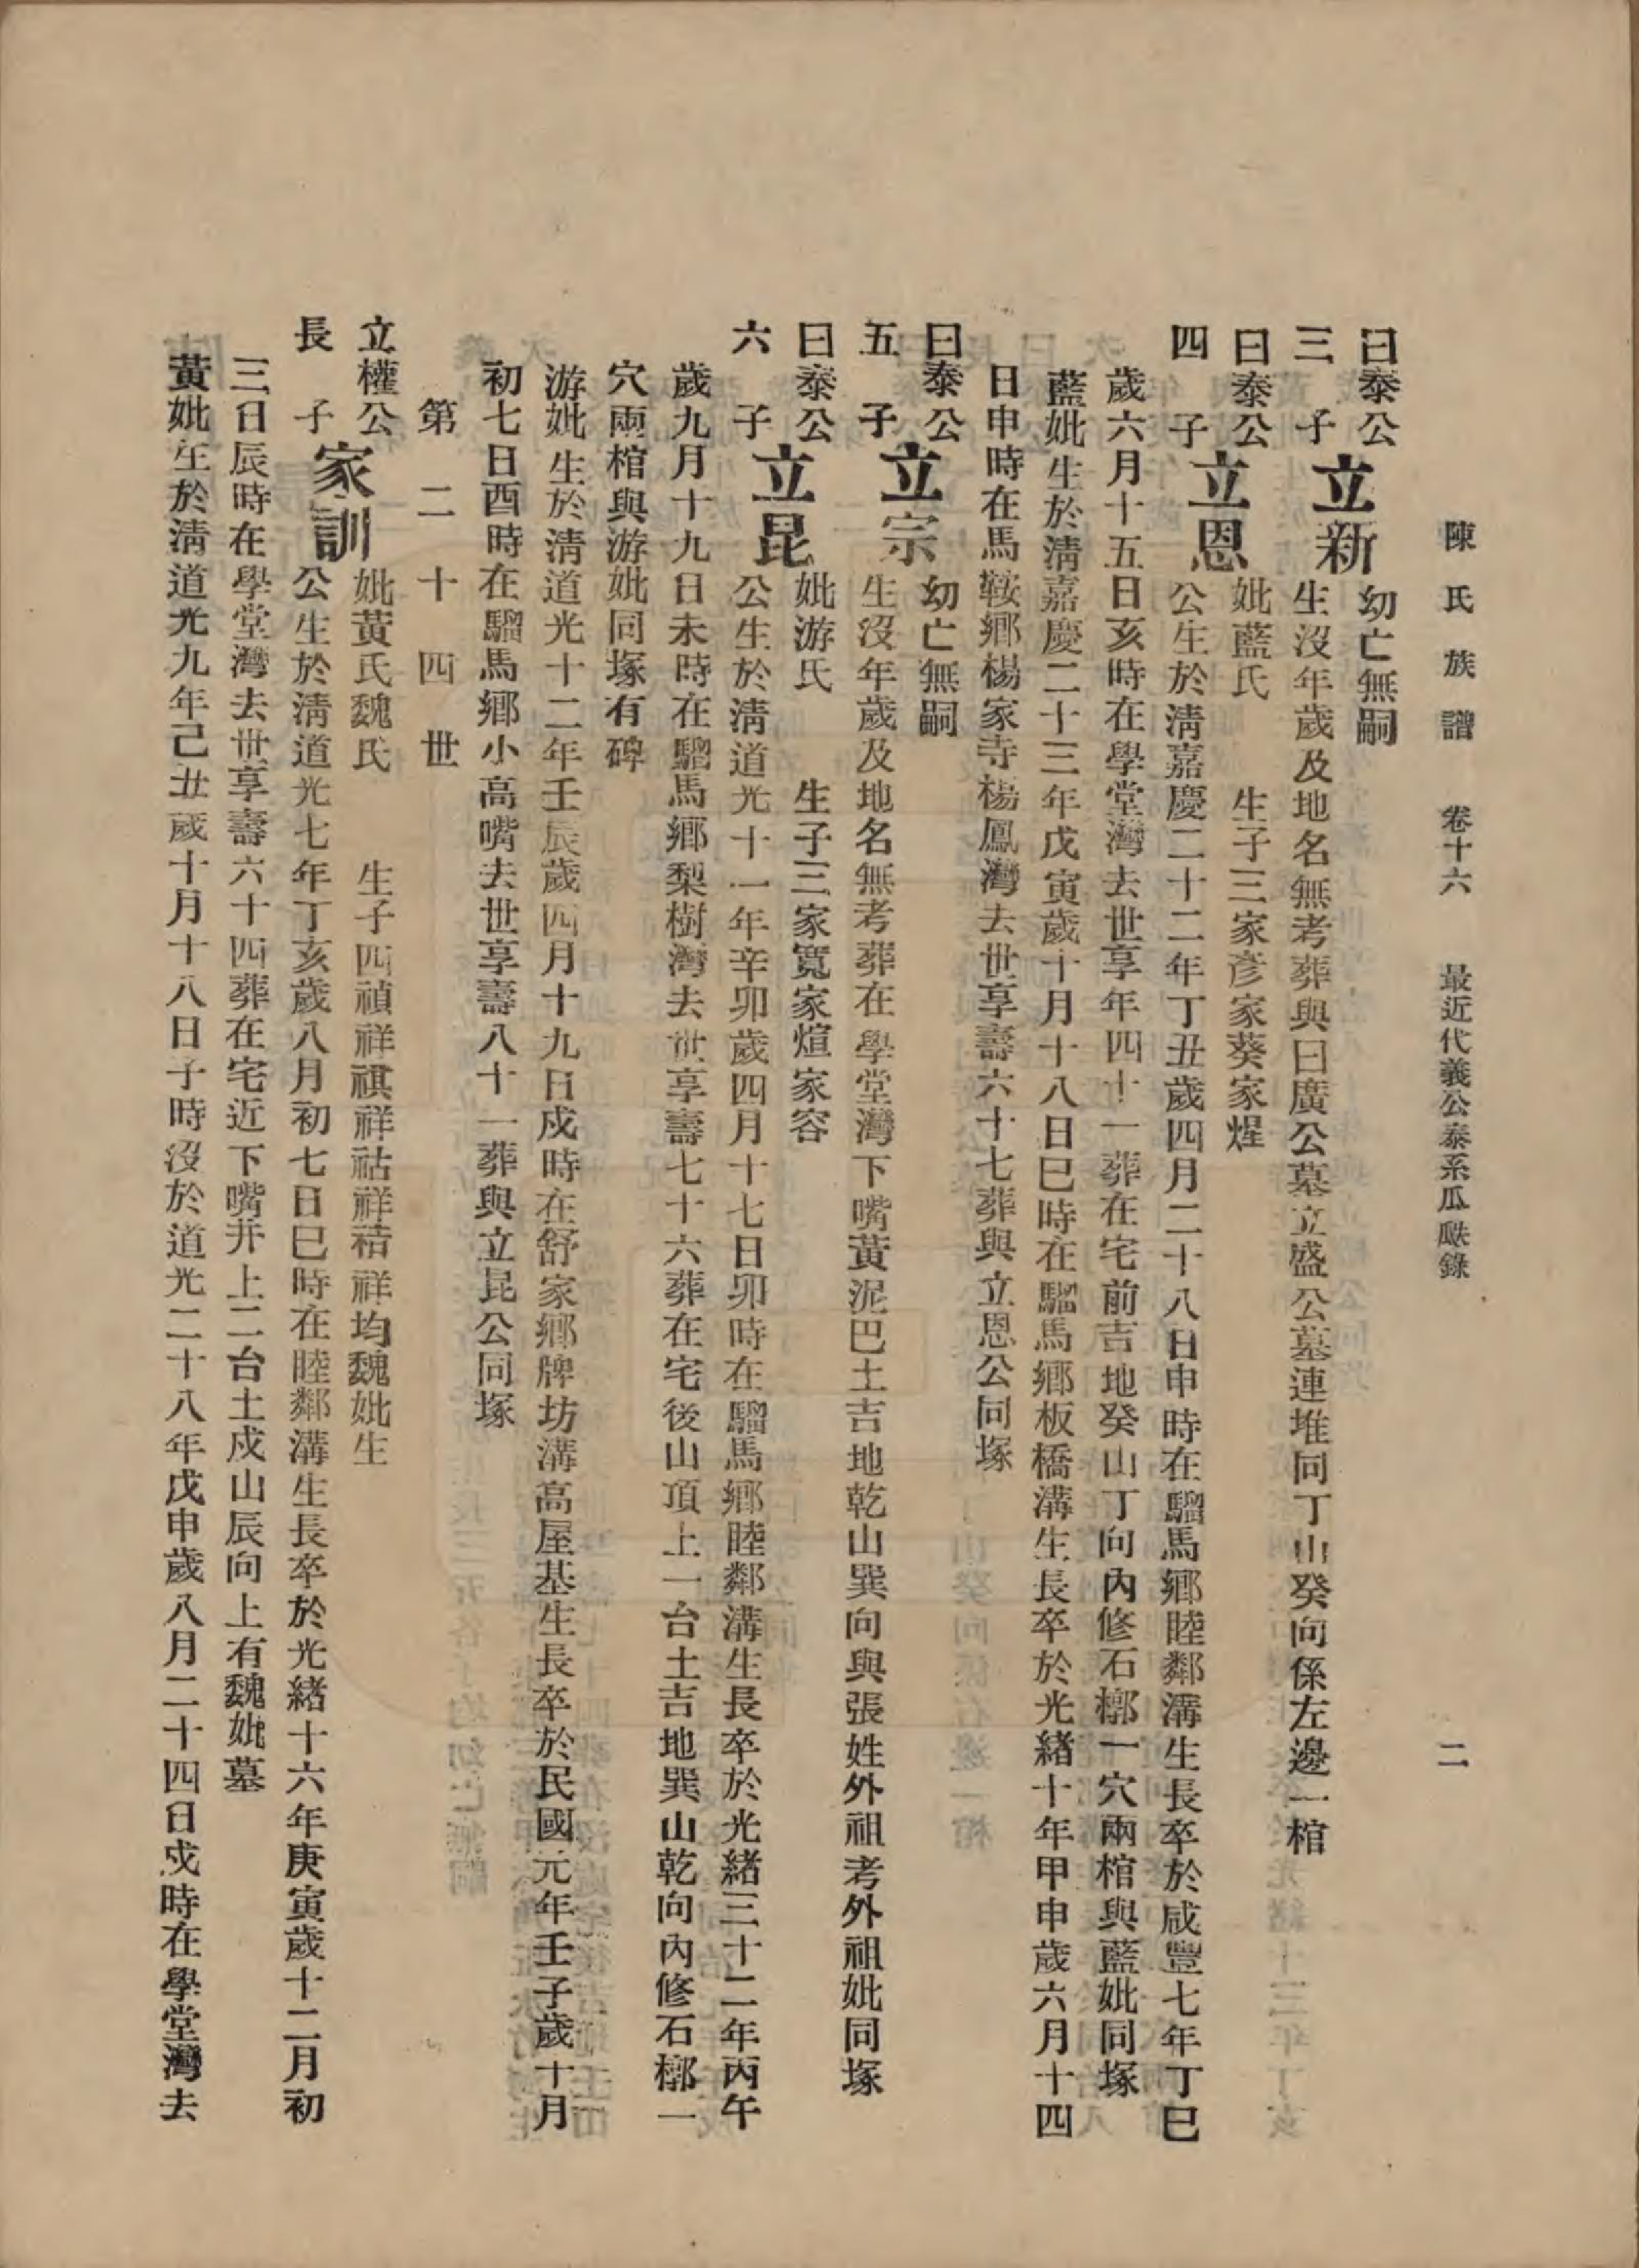 陳氏族譜 卷十六 最近代義公泰系瓜瓞錄 二
曰泰公 幼亡無嗣
三子 立新 生沒年歲及地名無考葬與曰廣公墓立盛公墓連堆同丁山癸向係左邊一棺
曰泰公 妣藍氏 生子三家彥家葵家煋
四子 立恩 公生於清嘉慶二十二年丁丑歲四月二十八日申時在騮馬鄉睦鄰溝生長卒於咸豐七年丁巳
歲六月十五日亥時在學堂灣去世享年四十一葬在宅前吉地癸山丁向內修石槨一穴兩棺與藍妣同塚
藍妣生於清嘉慶二十三年戊寅歲十月十八日巳時在騮馬鄉板橋溝生長卒於光緒十年甲申歲六月十四
日申時在馬鞍鄉楊家寺楊鳳灣去世享壽六十七葬與立恩公同塚
曰泰公 幼亡無嗣
五子 立宗 生沒年歲及地名無考葬在學堂灣下嘴黃泥巴土吉地乾山巽向與張姓外祖考外祖妣同塚
曰泰公 妣游氏 生子三家寬家煊家容
六子 立昆 公生於清道光十一年辛卯歲四月十七日卯時在騮馬鄉睦鄰溝生長卒於光緒三十二年丙午
歲九月十九日未時在騮馬鄉梨樹灣去世享壽七十六葬在宅後山頂上一台土吉地巽山乾向內修石槨一
穴兩棺與游妣同塚有碑
游妣生於清道光十二年壬辰歲四月十九日戌時在舒家鄉牌坊溝高屋基生長卒於民國元年壬子歲十月
初七日酉時在騮馬鄉小高嘴去世享壽八十一葬與立昆公同塚
第二十四世
立權公 妣黃氏魏氏 生子四禎祥祺祥祜祥禧祥均魏妣生
長子 家訓 公生於清道光七年丁亥歲八月初七日巳時在睦鄰溝生長卒於光緒十六年庚寅歲十二月初
三日辰時在學堂灣去世享壽六十四葬在宅近下嘴井上二台土戌山辰向上有魏妣墓
黃妣生於清道光九年己丑歲十月十八日子時沒於道光二十八年戊申歲八月二十四日戌時在學堂灣去